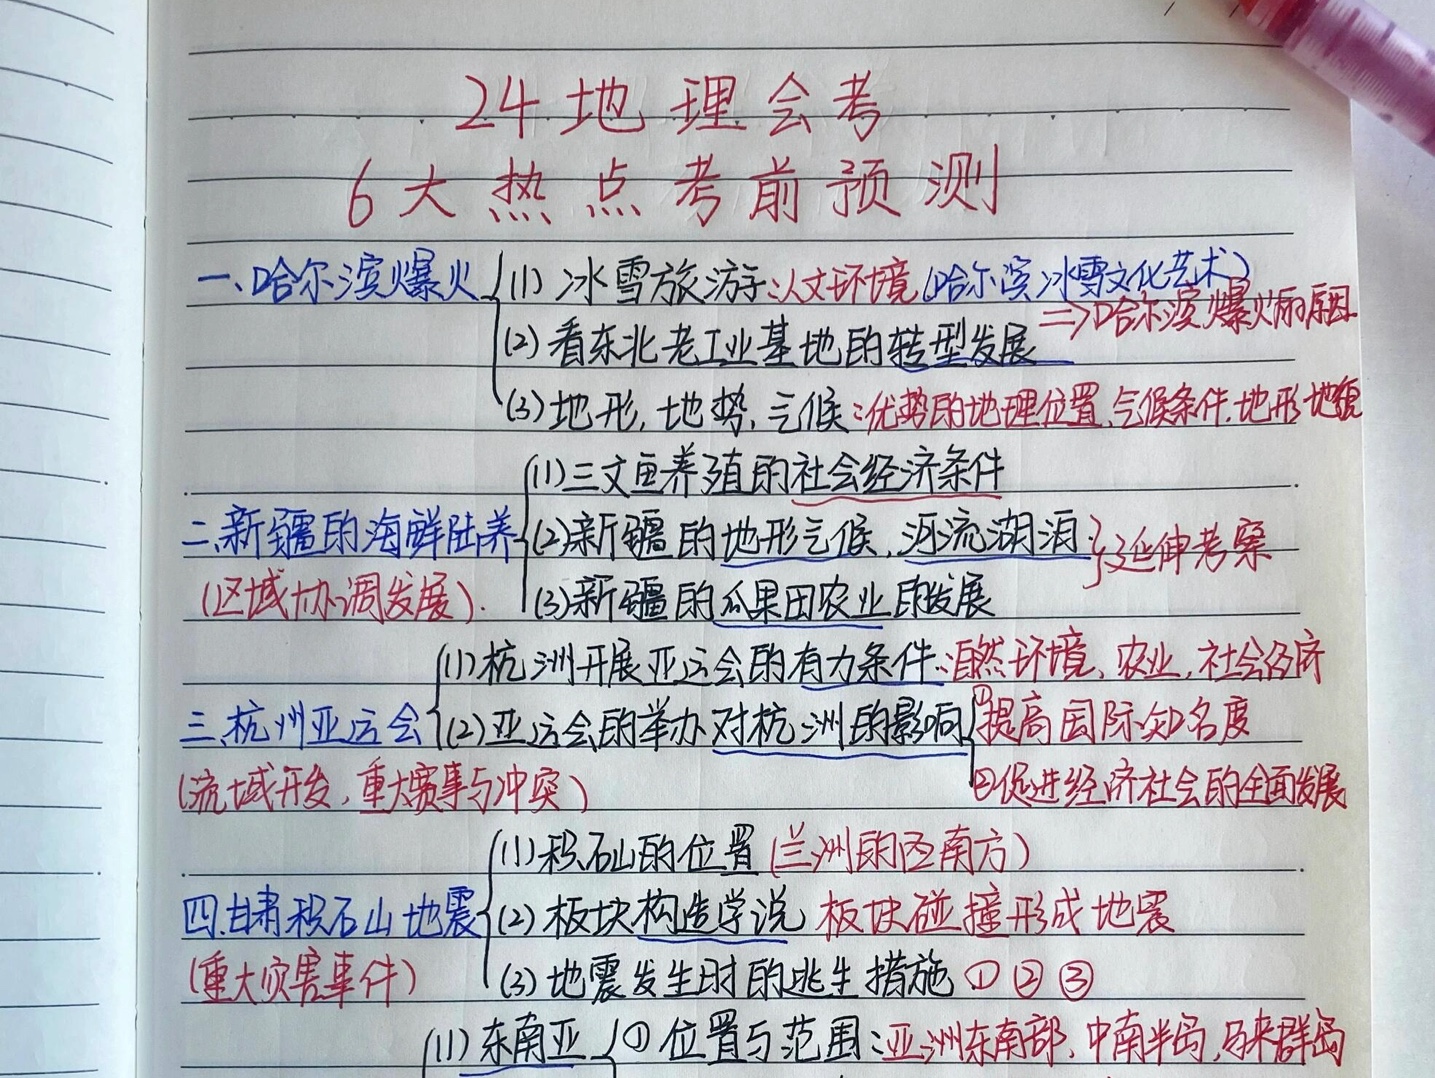 24地理会考
6大热点考前预测
一、哈尔滨爆火
(1)冰雪旅游:人文环境(哈尔滨冰雪文化艺术)
⇒哈尔滨爆火的原因
(2)看东北老工业基地的转型发展
(3)地形,地势,气候:优势的地理位置,气候条件,地形地貌
二、新疆的海鲜陆养
(区域协调发展).
(1)三文鱼养殖的社会经济条件
(2)新疆的地形气候,河流湖泊
(3)新疆的瓜果田农业的发展
}延伸考察
三、杭州亚运会
(流域开发,重大赛事与冲突)
(1)杭洲开展亚运会的有力条件:自然环境、农业,社会经济
(2)亚运会的举办对杭洲的影响
①提高国际知名度
②促进经济社会的全面发展
四.甘肃积石山地震
(重大灾害事件)
(1)积石山的位置(兰洲的西南方)
(2)板块构造学说 板块碰撞形成地震
(3)地震发生时的逃生措施①②③
(1)东南亚
①位置与范围:亚洲东南部,中南半岛,马来群岛